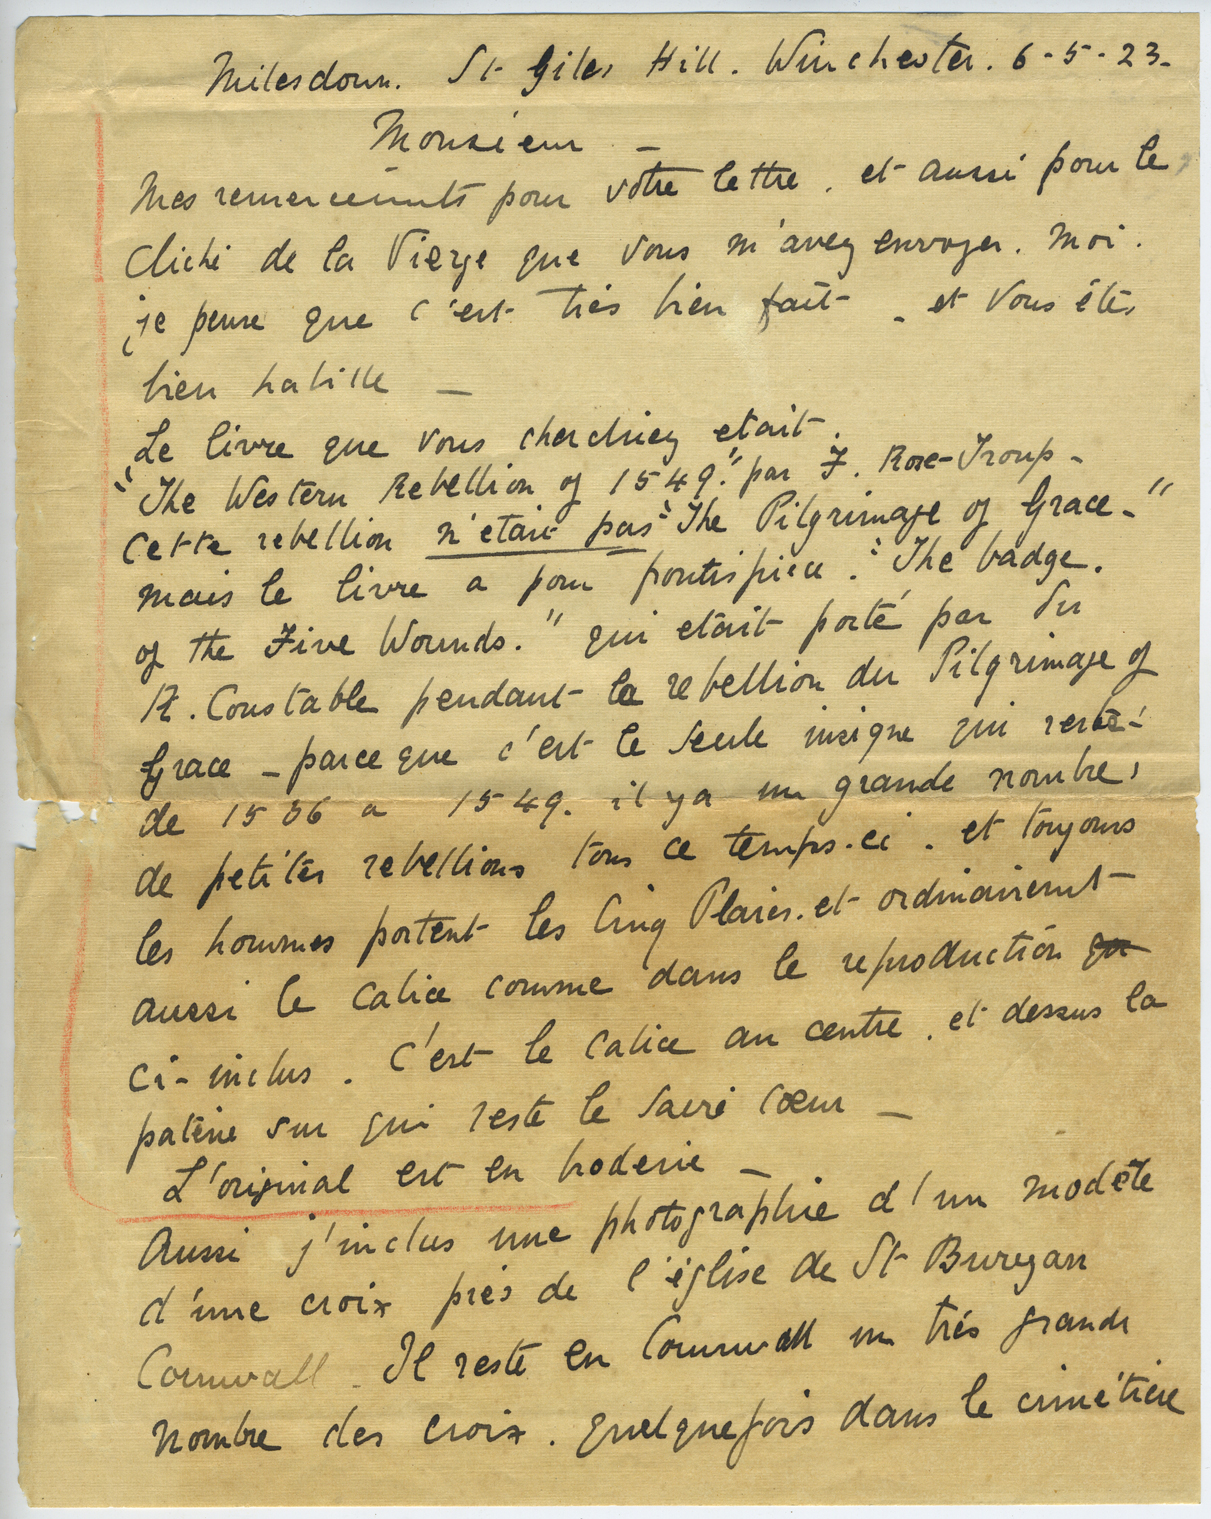 Milesdown. St Giles Hill. Winchester. 6-5-23-
Monsieur -
Mes remerciments pour votre lettre. et aussi pour le
cliché de la Vierge que vous m'avez envoyer. Moi.
je pense que c'est très bien fait - et vous êtes
bien habille -
Le livre que vous cherchiez etait.
"The Western Rebellion of 1549." par F. Rose-Troup -
Cette rebellion n'etait pas "The Pilgrimage of Grace-"
mais le livre a pour frontispiece. "The badge.
of the Five Wounds." qui etait porté par Sir
R. Constable pendant la rebellion du Pilgrimage of
Grace - parce que c'est le seule insigne qui reste-
de 1536 a 1549. il y a un grande nombre,
de petites rebellions tous ce temps-ci. et toujours
les hommes portent les Cinq Plaies. et ordinairement
aussi le Calice comme dans le reproduction
ci-inclus. C'est le Calice au centre. et dessus la
patène sur qui reste le Sacré Cœur -
L'original est en broderie -
Aussi j'inclus une photographie d'un modèle
d'une croix près de l'église de St Bureyan
Cornwall. Il reste en Cornwall un très grande
nombre des croix. quelquefois dans le cimétière